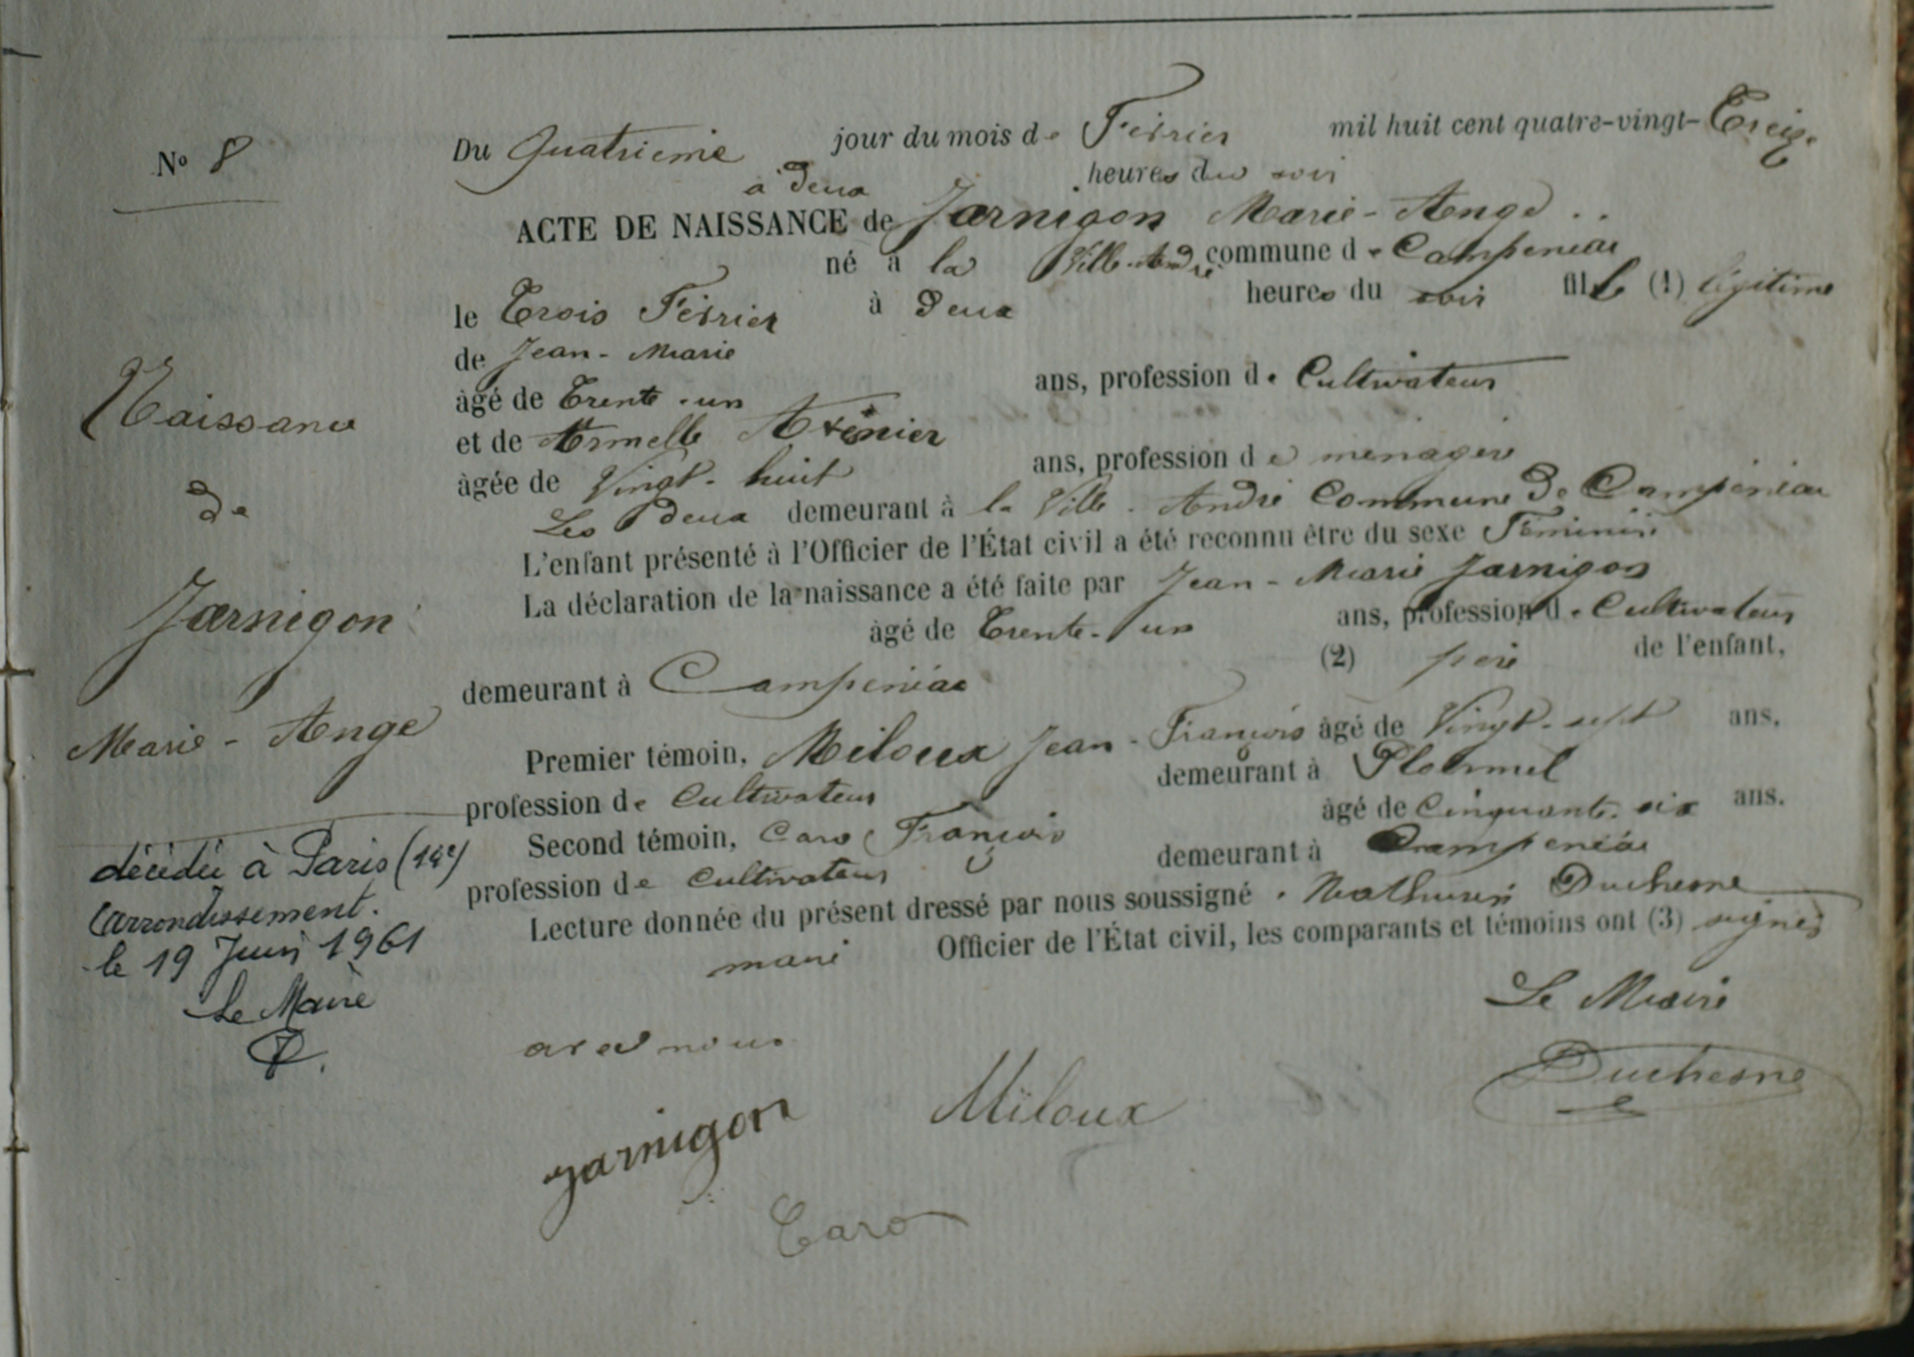 N° 8
Du Quatrième jour du mois de Février mil huit cent quatre-vingt-Treize
à deux heures du soir
ACTE DE NAISSANCE de Jarnigon Marie-Ange
né à la Ville-André commune de Campénéac
le Trois Février à Deux heures du soir fille (1) légitime
de Jean-Marie
âgé de trente-un ans, profession de Cultivateur
et de Armelle
âgée de Vingt-huit ans, profession de ménagère
Les deux demeurant à la Ville-André Commune de Campénéac
L'enfant présenté à l'Officier de l'État civil a été reconnu être du sexe Féminin
La déclaration de la naissance a été faite par Jean-Marie Jarnigon
âgé de trente-un ans, profession de Cultivateur
demeurant à Campénéac (2) père de l'enfant,
Premier témoin, Miloux Jean-François âgé de Vingt-sept ans,
profession de Cultivateur demeurant à Ploërmel
Second témoin, Caro François âgé de Cinquante-six ans.
profession de Cultivateur demeurant à Campénéac
Lecture donnée du présent dressé par nous soussigné, Mathurin Duchesne
maire Officier de l'État civil, les comparants et témoins ont (3) signés
avec nous
Le Maire
Duchesne
Jarnigon
Miloux
Caro
Naissance
de
Jarnigon
Marie-Ange
décédée à Paris (14e)
arrondissement.
le 19 Juin 1961
Le Maire